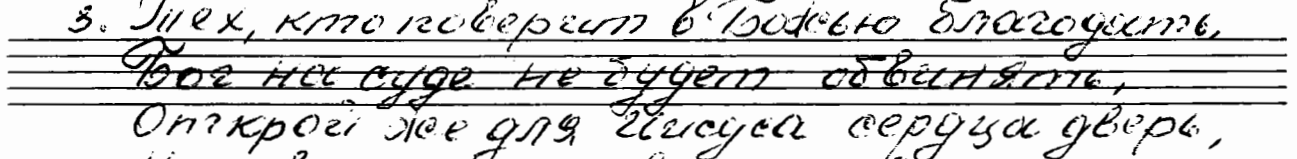 3. Тех, кто поверит в Божью благодать,
Бог на суде не будет обвинять,
Открой же для Иисуса сердца дверь,